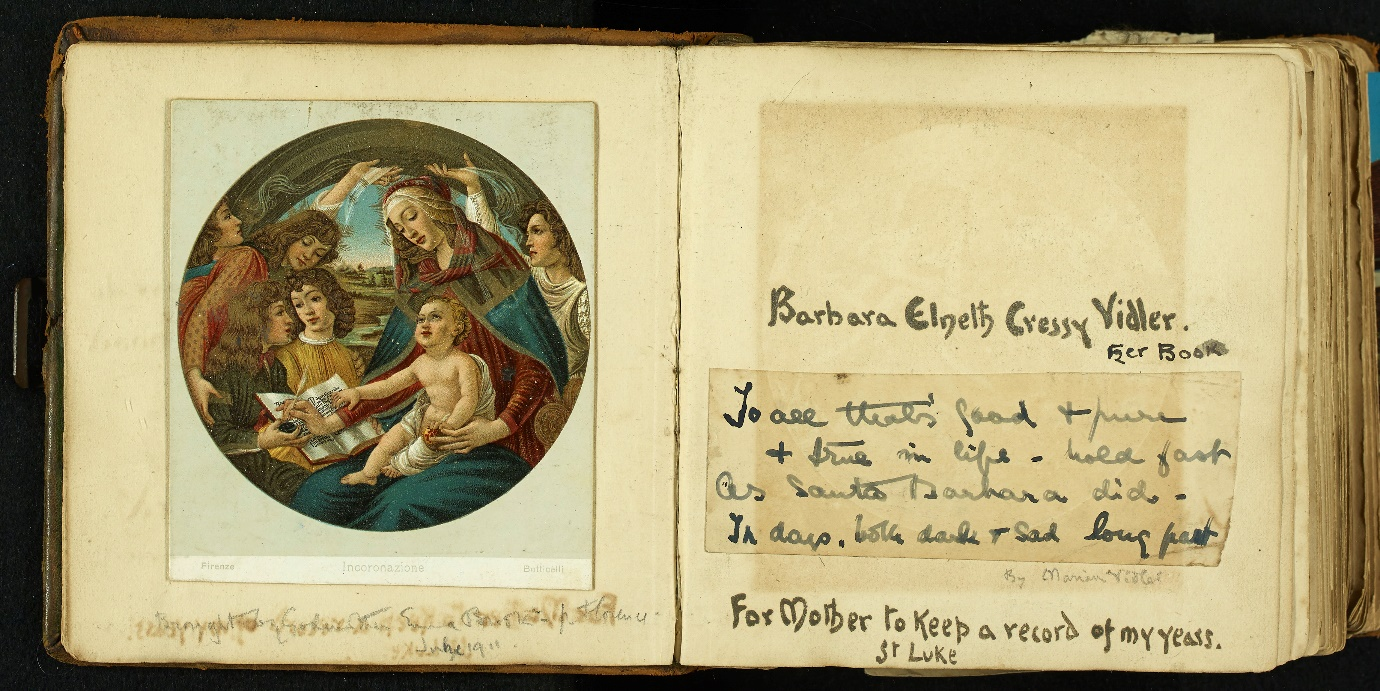 Firenze Incoronazione Botticelli
Brought by
June 1911
Barbara Elneth Cressy Vidler.
Her Book
To all that's good + pure
+ true in life - hold fast
As Santa Barbara did -
In days, both dark + sad long past
By Marion Vidler
For Mother to keep a record of my years.
St Luke